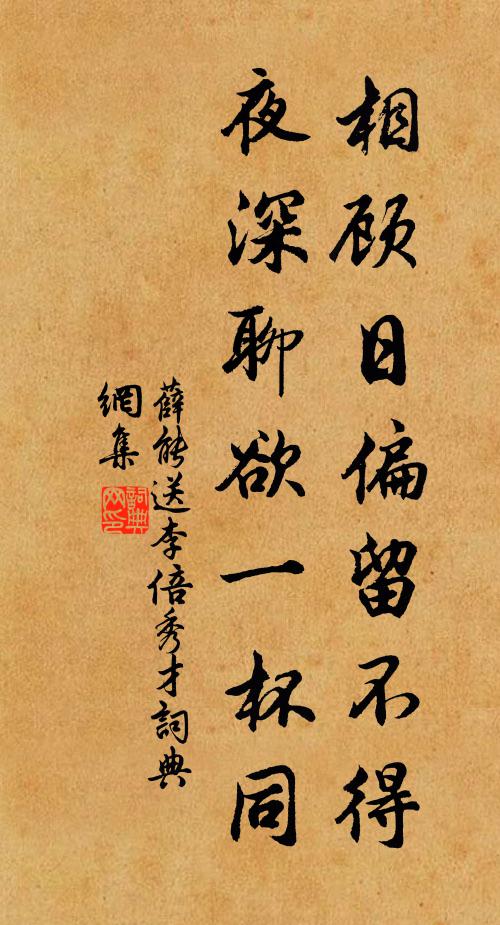 相顾日偏留不得
夜深聊欲一杯同
薛能送李倍秀才詞典
網集
詞典網印